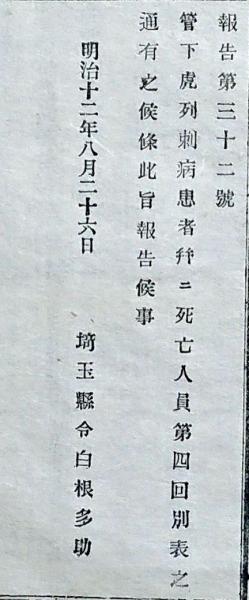 報告第三十二號
管下虎列刺病患者幷ニ死亡人員第四回別表之
通有之候條此旨報告候事
明治十二年八月二十六日
埼玉縣令白根多助